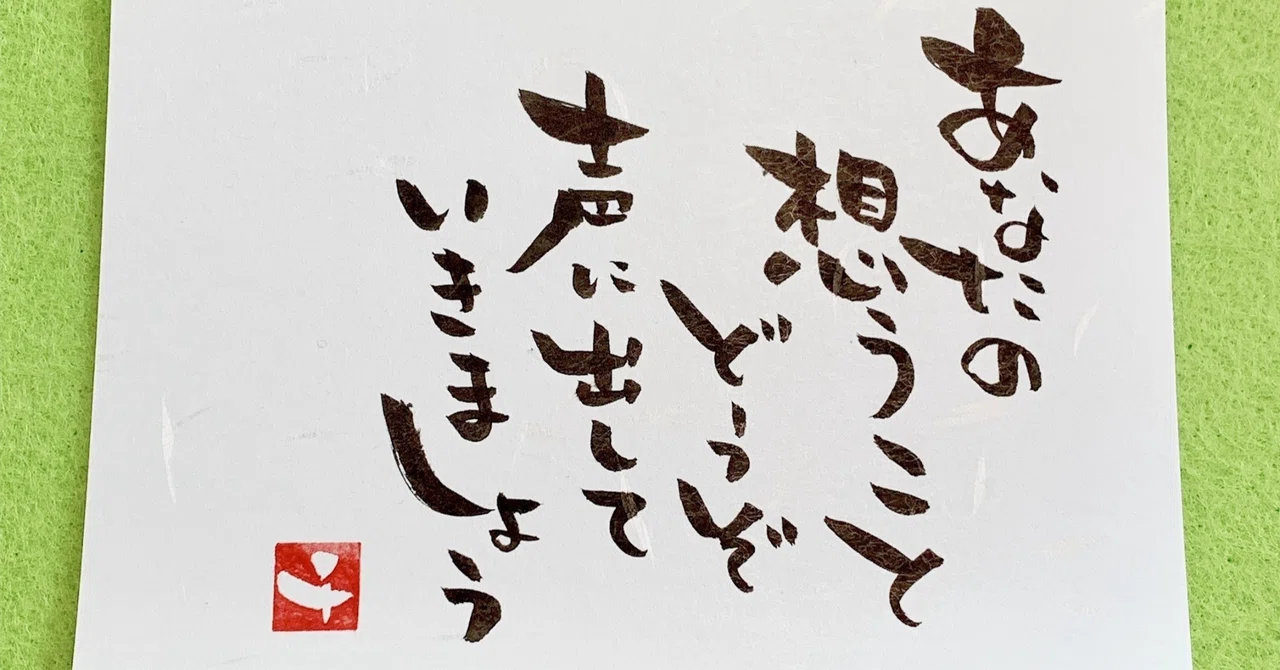 あなたの
想うこと
どうぞ
声に出して
いきましょう